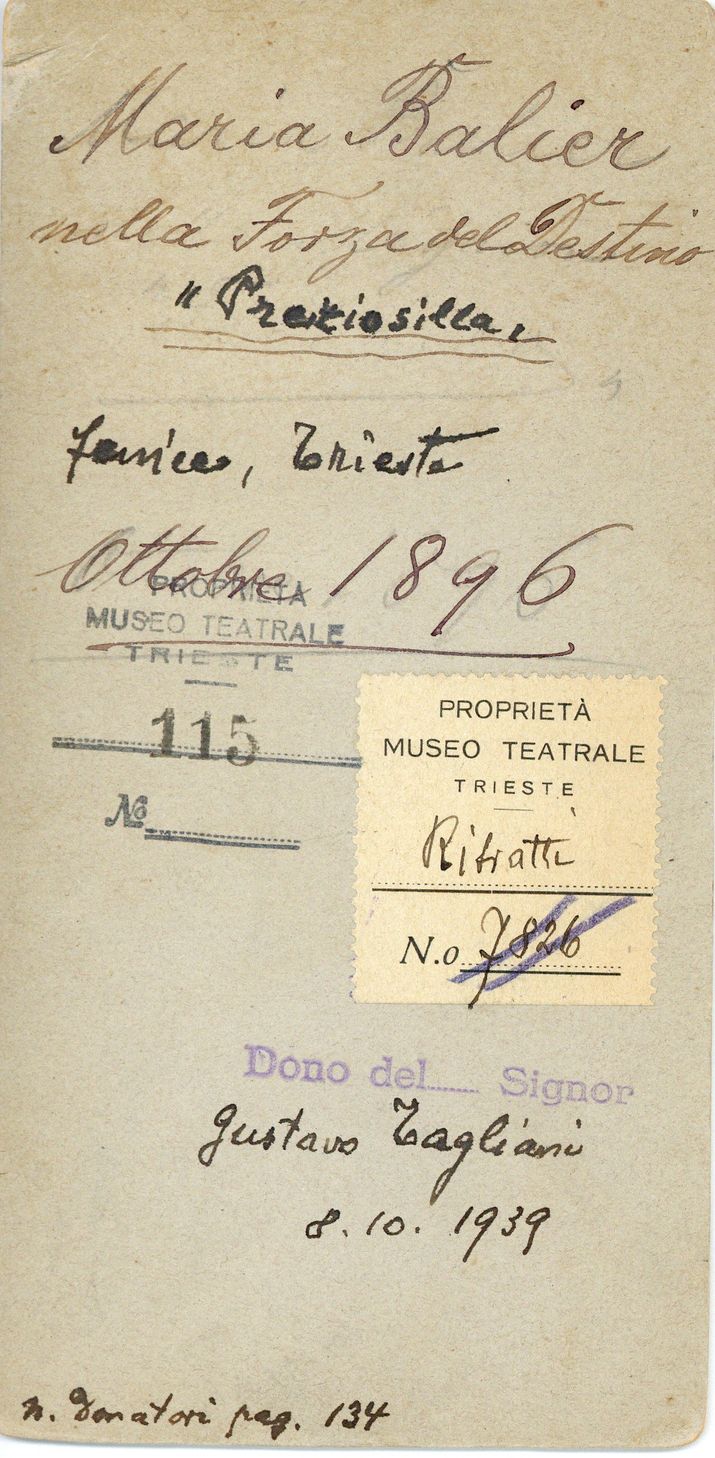 Maria Balier
nella Forza del Destino
"Preziosilla"
Fenice, Trieste
Ottobre 1896
PROPRIETÀ
MUSEO TEATRALE
TRIESTE
115
No
PROPRIETÀ
MUSEO TEATRALE
TRIESTE
Ritratti
N.o 7826
Dono del...... Signor
Gustavo Tagliani
8. 10. 1939
n. Donatori pag. 134